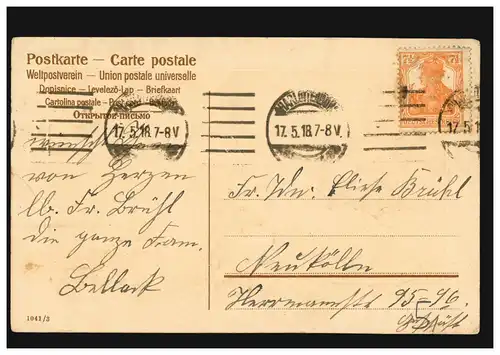 Postkarte – Carte postale
Weltpostverein – Union postale universelle
Dopisnice – Levelező-Lap – Briefkaart
Cartolina postale –
Открытое письмо
17.5.18.7-8V
17.5.18.7-8V.
17.5.18
7½
wünscht
von Herzen
lb. Fr. Brühl
die ganze Fam.
Bellack
Fr. Idw. Eliese Brühl
Neukölln
Herrmannstr 95-96.
1041/3